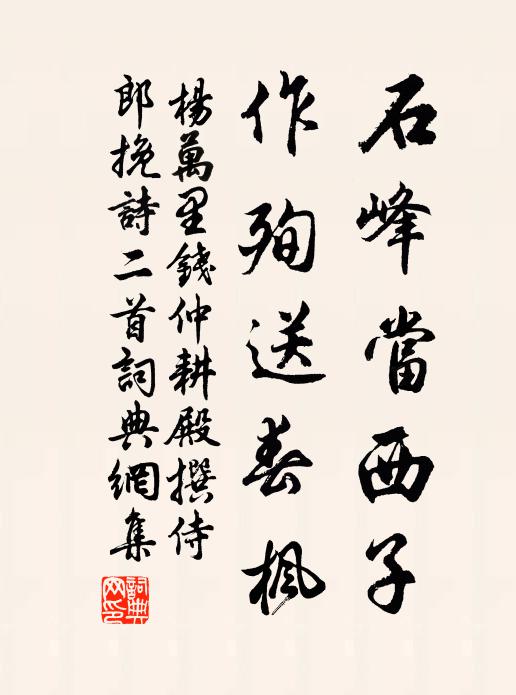 石峰當西子
作殉送春楓
楊萬里錢仲耕殿撰侍
郎挽詩二首詞典網集
詞典
网印